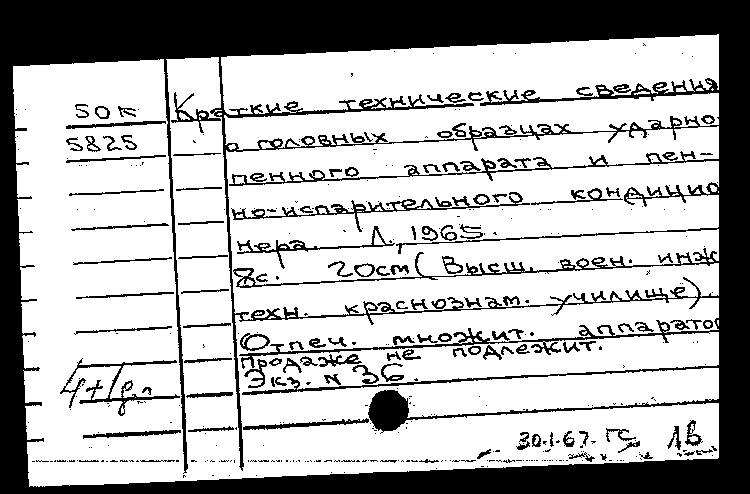 50к Краткие технические сведения
5825 о головных образцах ударно-
пенного аппарата и пен-
но-испарительного кондицио
нера. Л., 1965.
8с. 20cm (Высш. воен. инж
техн. краснознам. училище).
Отпеч. множит. аппарато
Продаже не подлежит.
Экз. N 36.
30.1.67. ЛВ